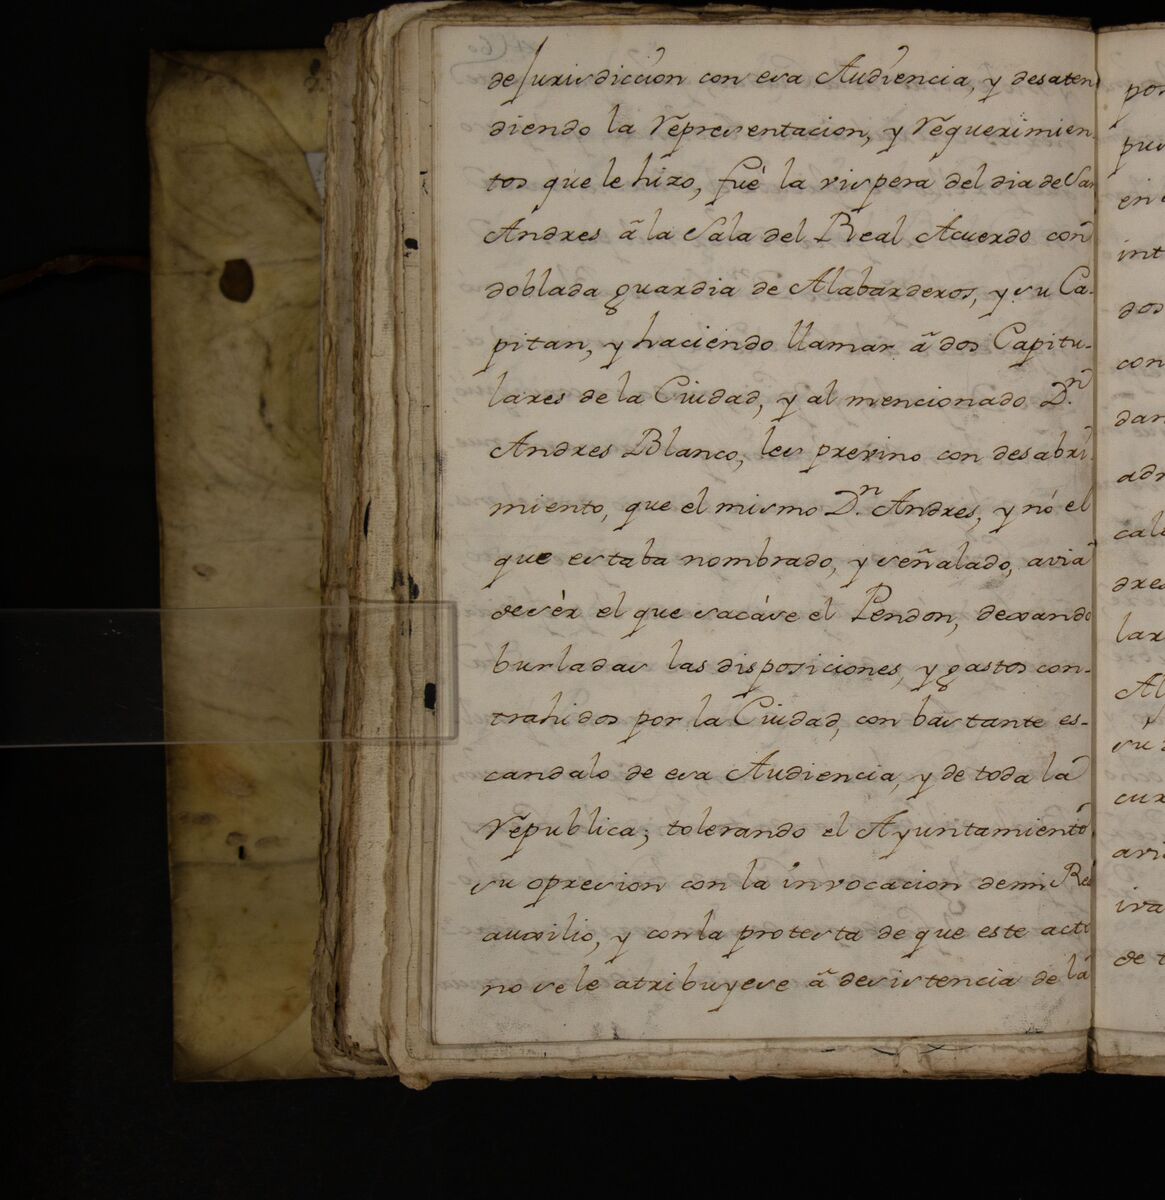 de Jurisdiccion con esa Audiencia, y desaten
diendo la representacion, y requerimien-
tos que le hizo, fué la vispera del dia de San
Andres â la Sala del Real Acuerdo con
doblada guardia de Alabarderos, y su Ca-
pitan, y haciendo llamar â dos Capitu-
lares de la Ciudad, y al mencionado D.n
Andres Blanco, les previno con desabri-
miento, que el mismo D.n Andres, y nó el
que estaba nombrado, y señalado, avia
de sér el que sacáse el Pendon, dexando
burladas las disposiciones, y gastos con-
trahidos por la Ciudad, con bastante es-
candalo de esa Audiencia, y de toda la
republica; tolerando el Ayuntamiento
su opresion con la invocacion de mi Rl
auxilio, y con la protesta de que este acto
no se le atribuyese â desistencia de la
por
pus
en
int
dos
con
dan
adm
cale
dres
lar
Al
su
cur
avi
iva
de t